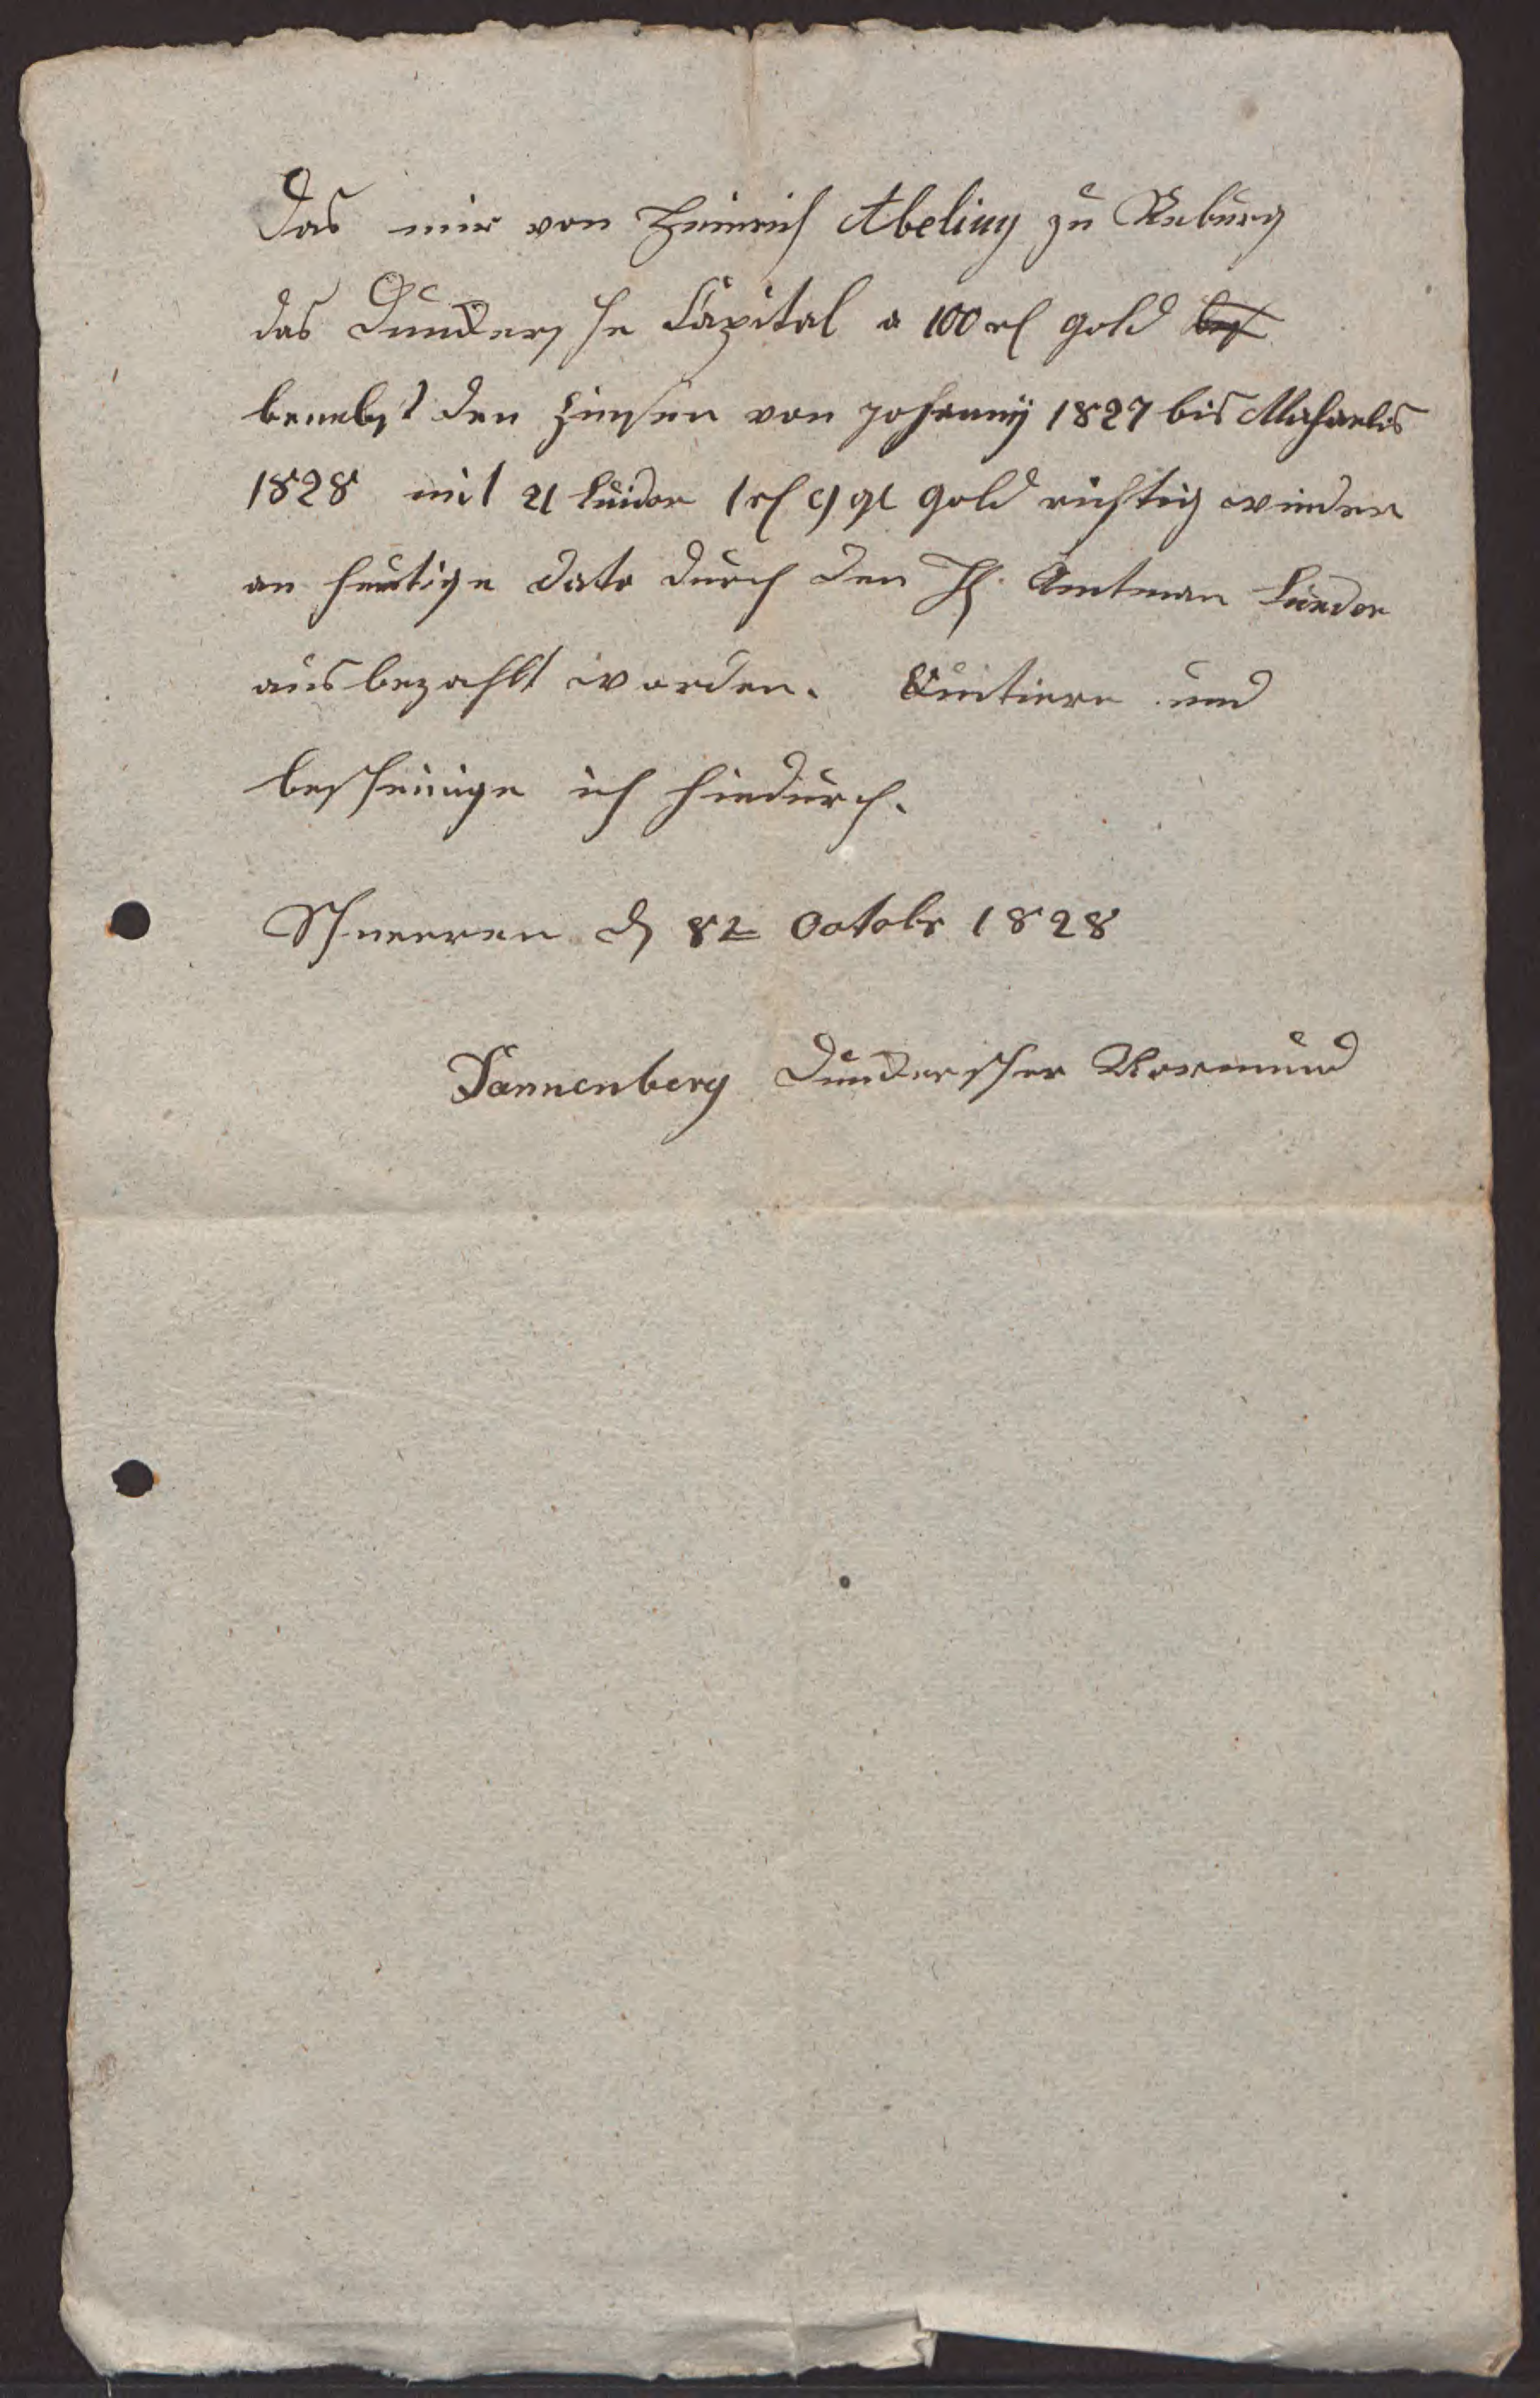 Das mir von Heinrich Abeling zu Reburg
das Dundersche Capital a 100 rl gold
benebst den Zinsen von Johanny 1827 bis Michaelis
1828 mit 21 Luidor 1 rl 9 gl gold richtig wieder
an heutige dato durch den H. Amtman Lueder
ausbezahlt worden. Quitiere und
bescheinige ich hiedurch.
Schneeren d 8t Octobr 1828
Dannenberg Dunderscher Vormund